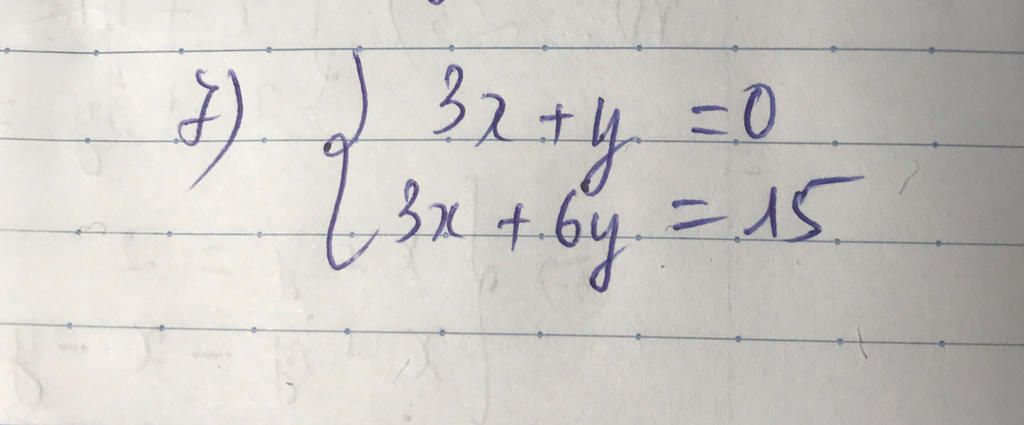 7) { 3x + y = 0
3x + 6y = 15